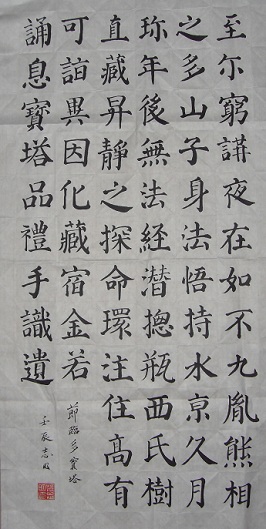 至尔窮講夜在如不九胤熊相
之多山子身法悟持水京久月
珎年後無法経潜揔瓶西氏樹
直藏昇靜之探命環注住髙有
可詣異因化藏宿金若
誦息寶塔品禮手識遺
節臨多寶塔
壬辰志